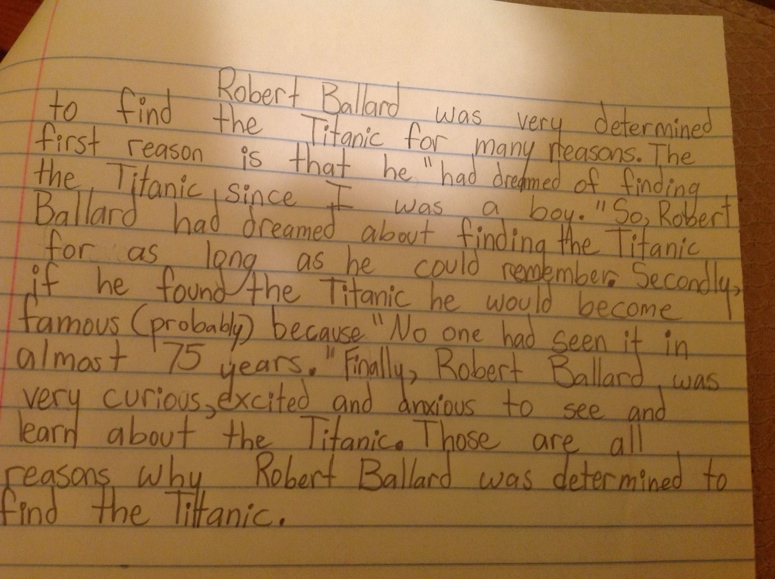 Robert Ballard was very determined
to find the Titanic for many reasons. The
first reason is that he "had dreamed of finding
the Titanic since I was a boy." So, Robert
Ballard had dreamed about finding the Titanic
for as long as he could remember. Secondly,
if he found the Titanic he would become
famous (probably) because "No one had seen it in
almost 75 years." Finally, Robert Ballard was
very curious, excited and anxious to see and
learn about the Titanic. Those are all
reasons why Robert Ballard was determined to
find the Tittanic.